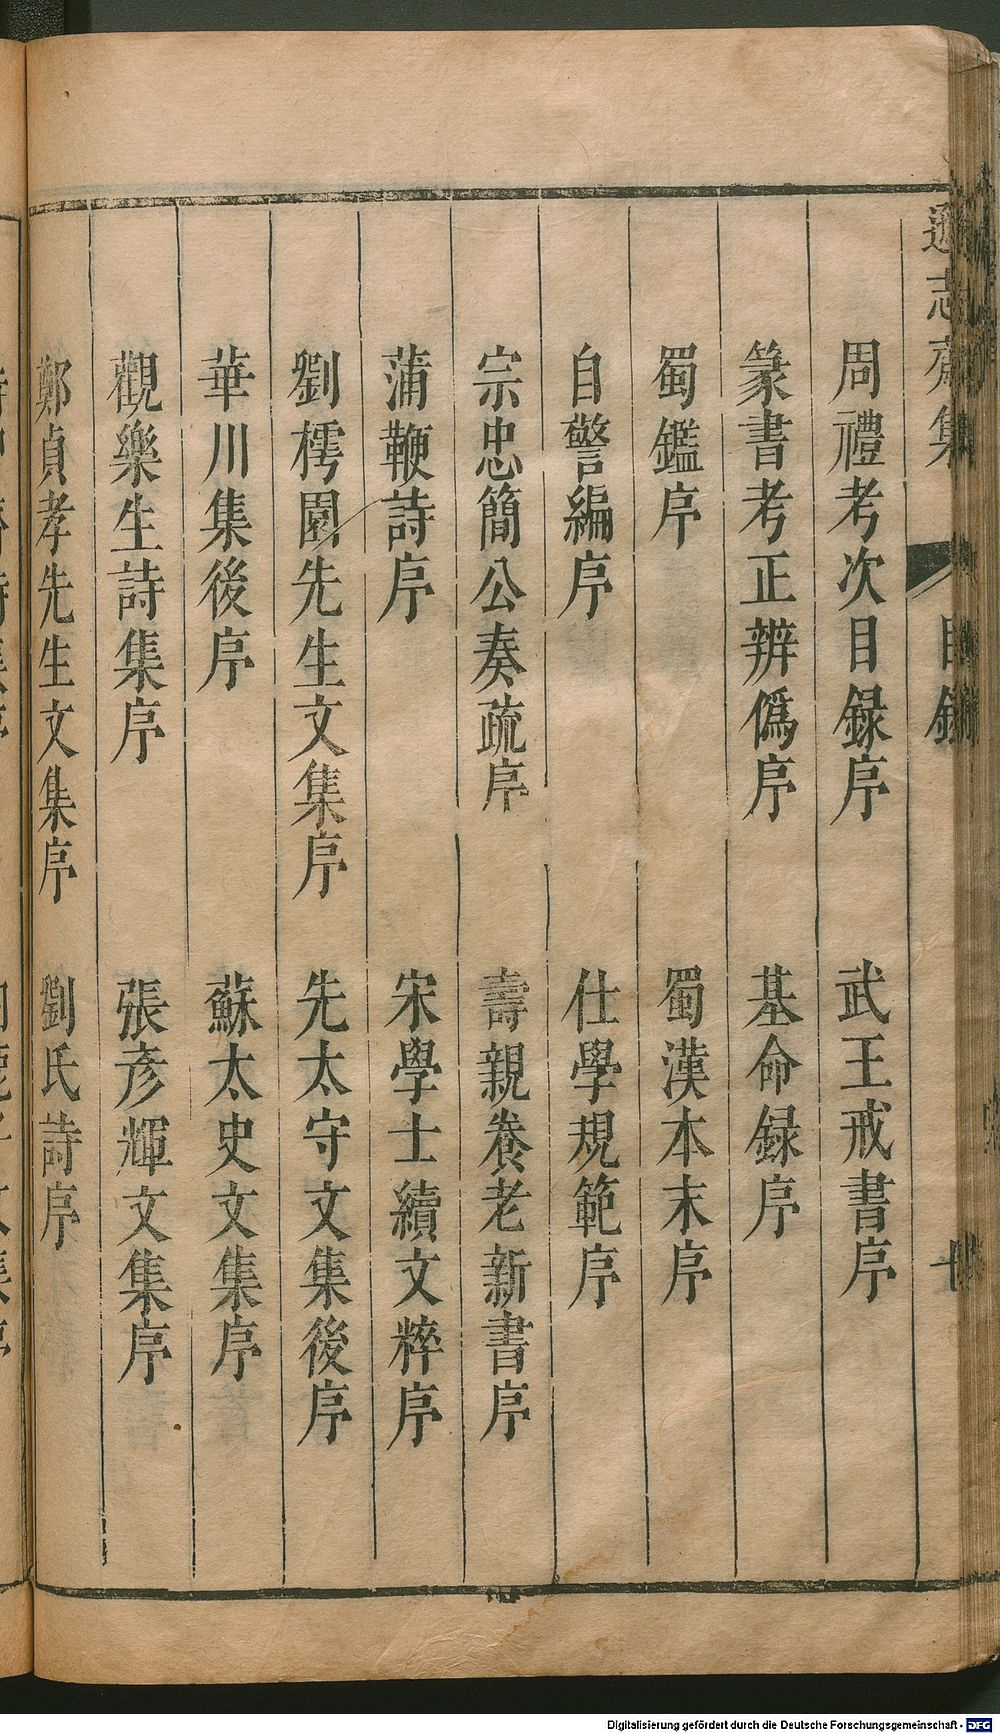 遜志齋集 目錄
周禮考次目録序 武王戒書序
篆書考正辨僞序 基命録序
蜀鑑序 蜀漢本末序
自警編序 仕學規範序
宗忠簡公奏疏序 壽親養老新書序
蒲鞭詩序 宋學士續文粹序
劉樗園先生文集序 先太守文集後序
華川集後序 蘇太史文集序
觀樂生詩集序 張彦輝文集序
鄭貞孝先生文集序 劉氏詩序
Digitalisierung gefördert durch die Deutsche Forschungsgemeinschaft - DFG